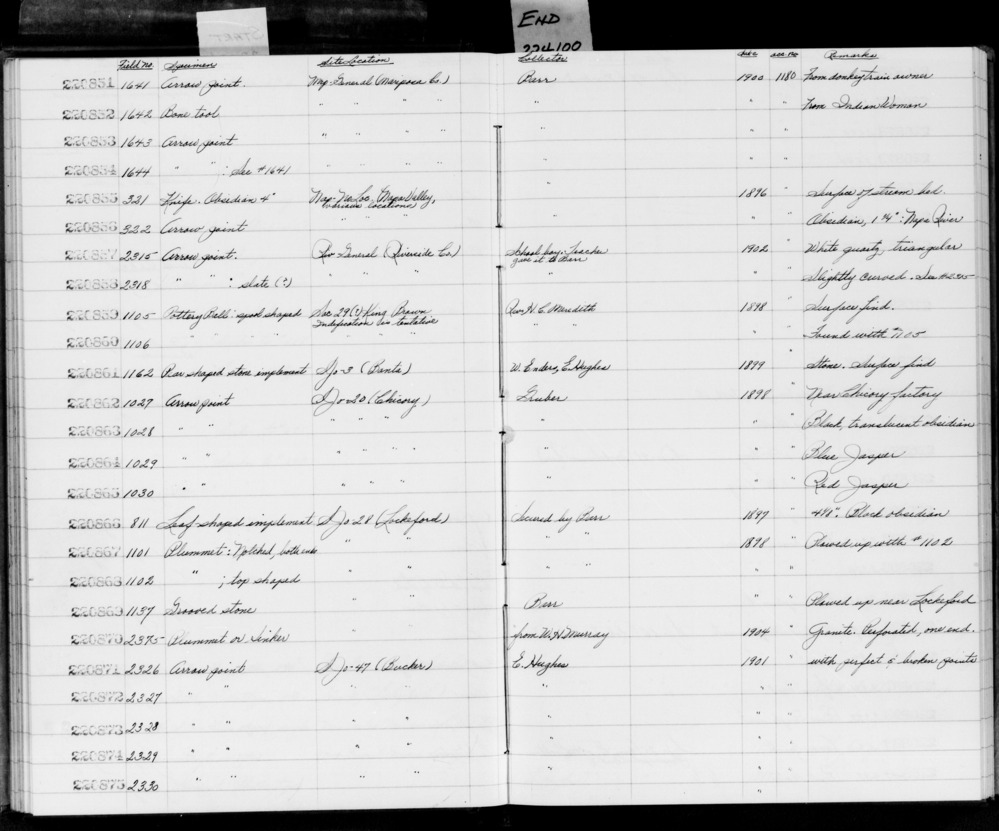 END
224100
Field No. Specimen Site Location Collector Date Acc. No Remarks
220851 1641 Arrow point. Mrp-General (Mariposa Co.) Barr 1900 1180 From donkey train owner
220852 1642 Bone tool " " " " " " From Indian Woman
220853 1643 Arrow point " " " " " "
220854 1644 " " : See #1641 " " " " " "
220855 321 Knife. Obsidian 4" Nap-No Loc. Napa Valley, 1896 " Surface of stream bed.
various locations
220856 322 Arrow point " " " Obsidian, 1 1/4": Napa River
220857 2315 Arrow point. Riv General (Riverside Co.) School boy. Teacher 1902 " White quartz, triangular
gave it to Barr
220858 2318 " " : slate (?) " " " " " Slightly curved. See #2315
220859 1105 Pottery Ball: spool shaped Sac 29(?) King Brown Rev. H. C. Meredith 1898 " Surface find.
Indefication is tentative
220860 1106 " " " " " " Found with #1105
220861 1162 Bar shaped stone implement SJo-3 (Banta) W. Enders, E. Hughes 1899 " Stone. Surface find
220862 1027 Arrow point SJo-20 (Chicory) Gruber 1898 " Near Chicory factory
220863 1028 " " " " " " " Black, translucent obsidian
220864 1029 " " " " " " " Blue Jasper
220865 1030 " " " " " " " Red Jasper
220866 811 Leaf shaped implement SJo-28 (Lockeford) Secured by Barr 1897 " Black obsidian
220867 1101 Plummet: Notched, both ends " " " " 1898 " Plowed up with #1102
220868 1102 " ; top shaped " " " " " "
220869 1137 Grooved stone " " Barr " " Plowed up near Lockeford
220870 2375 Plummet or sinker " " from W. H. Murray 1904 " Granite. Perforated, one end.
220871 2326 Arrow point SJo-47 (Bucker) E. Hughes 1901 " with perfect & broken points
220872 2327 " " " " " " "
220873 2328 " " " " " " "
220874 2329 " " " " " " "
220875 2330 " " " " " " "